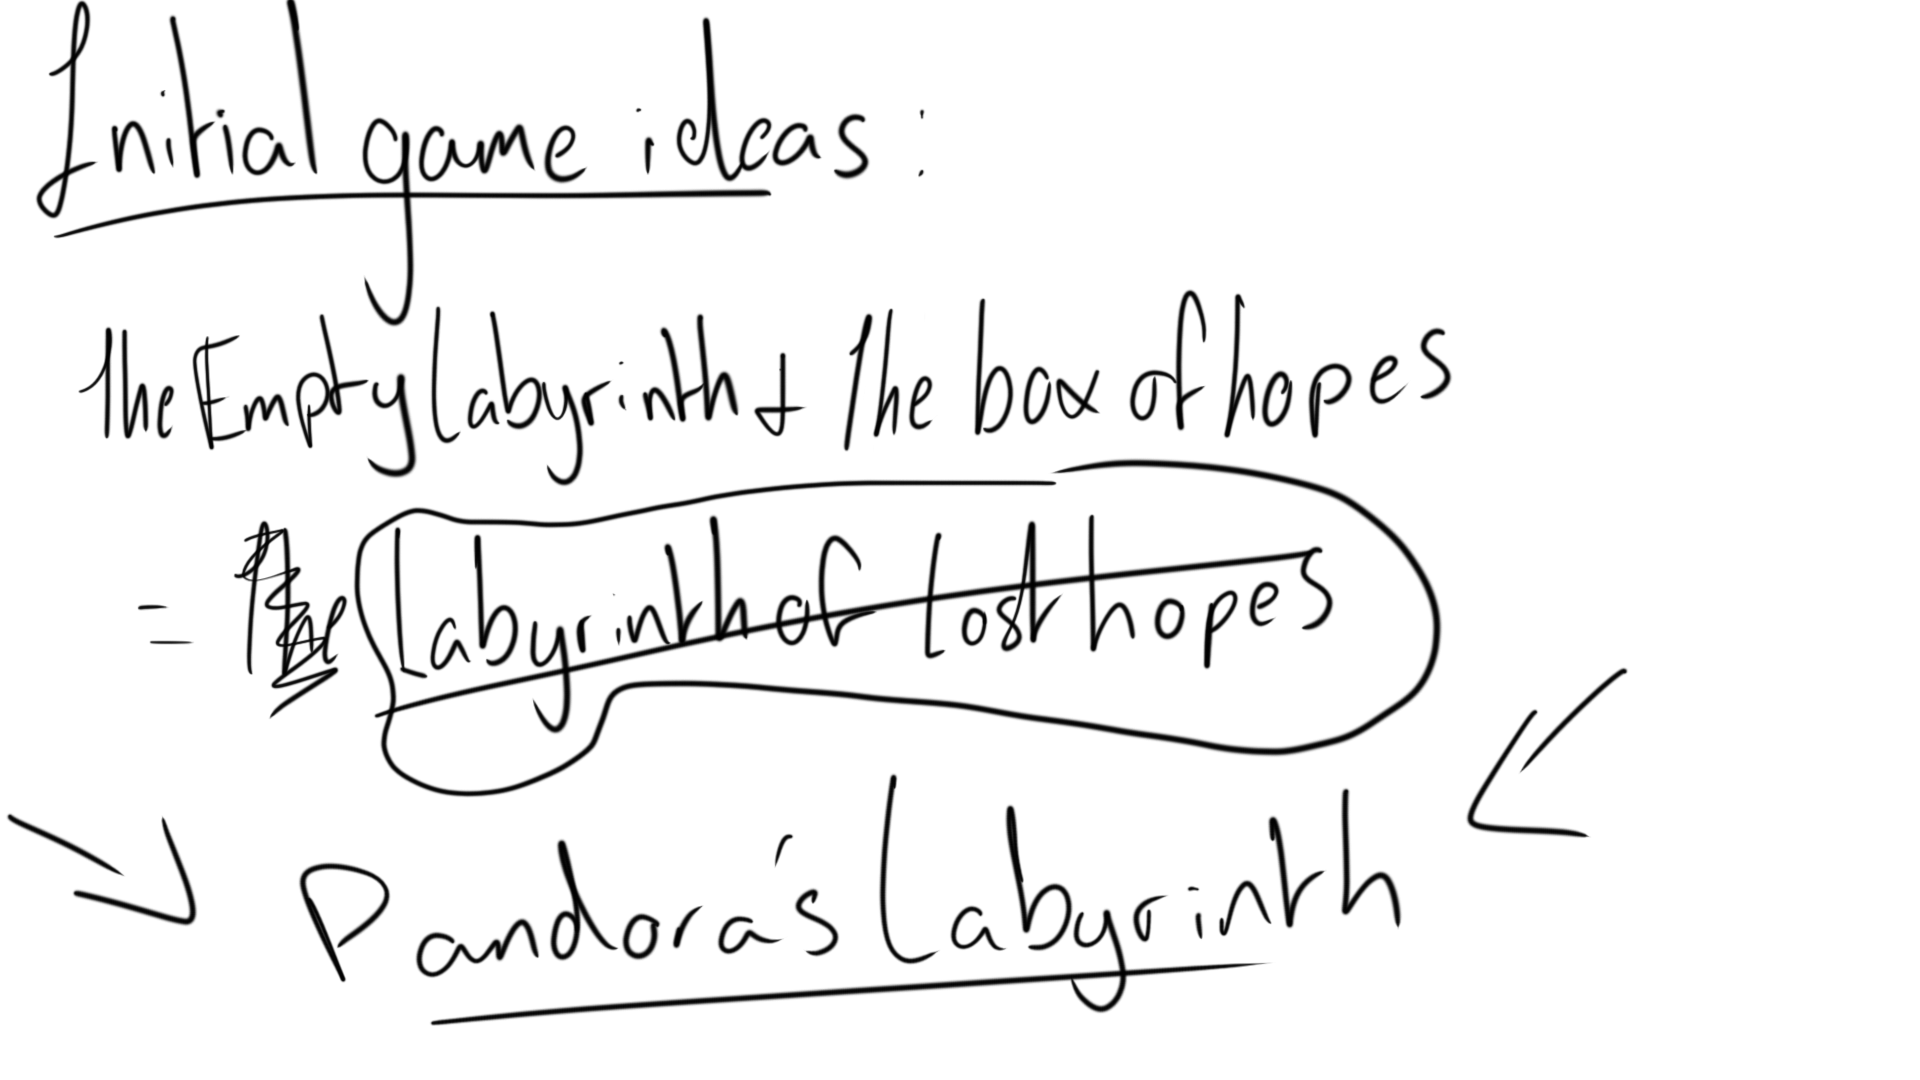 Initial game ideas:
The Empty Labyrinth & The box of hopes
= The Labyrinth of Lost hopes
Pandora's Labyrinth